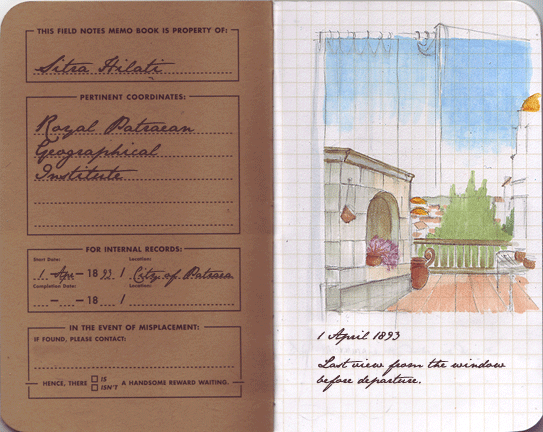 THIS FIELD NOTES MEMO BOOK IS PROPERTY OF:
Sitra Hilati
PERTINENT COORDINATES:
Royal Patraean
Geographical
Institute
FOR INTERNAL RECORDS:
Start Date: Location:
1 - Apr - 18 93 / City of Patraea
Completion Date: Location:
- - 18 /
IN THE EVENT OF MISPLACEMENT:
IF FOUND, PLEASE CONTACT:
HENCE, THERE IS A HANDSOME REWARD WAITING.
ISN'T
1 April 1893
Last view from the window
before departure.